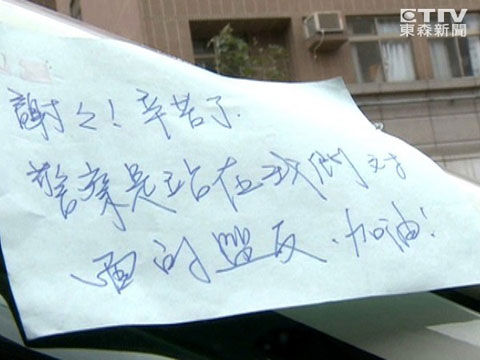 ETTV
東森新聞
謝々!辛苦了.
警察是站在我們对
面的盟友、加油!